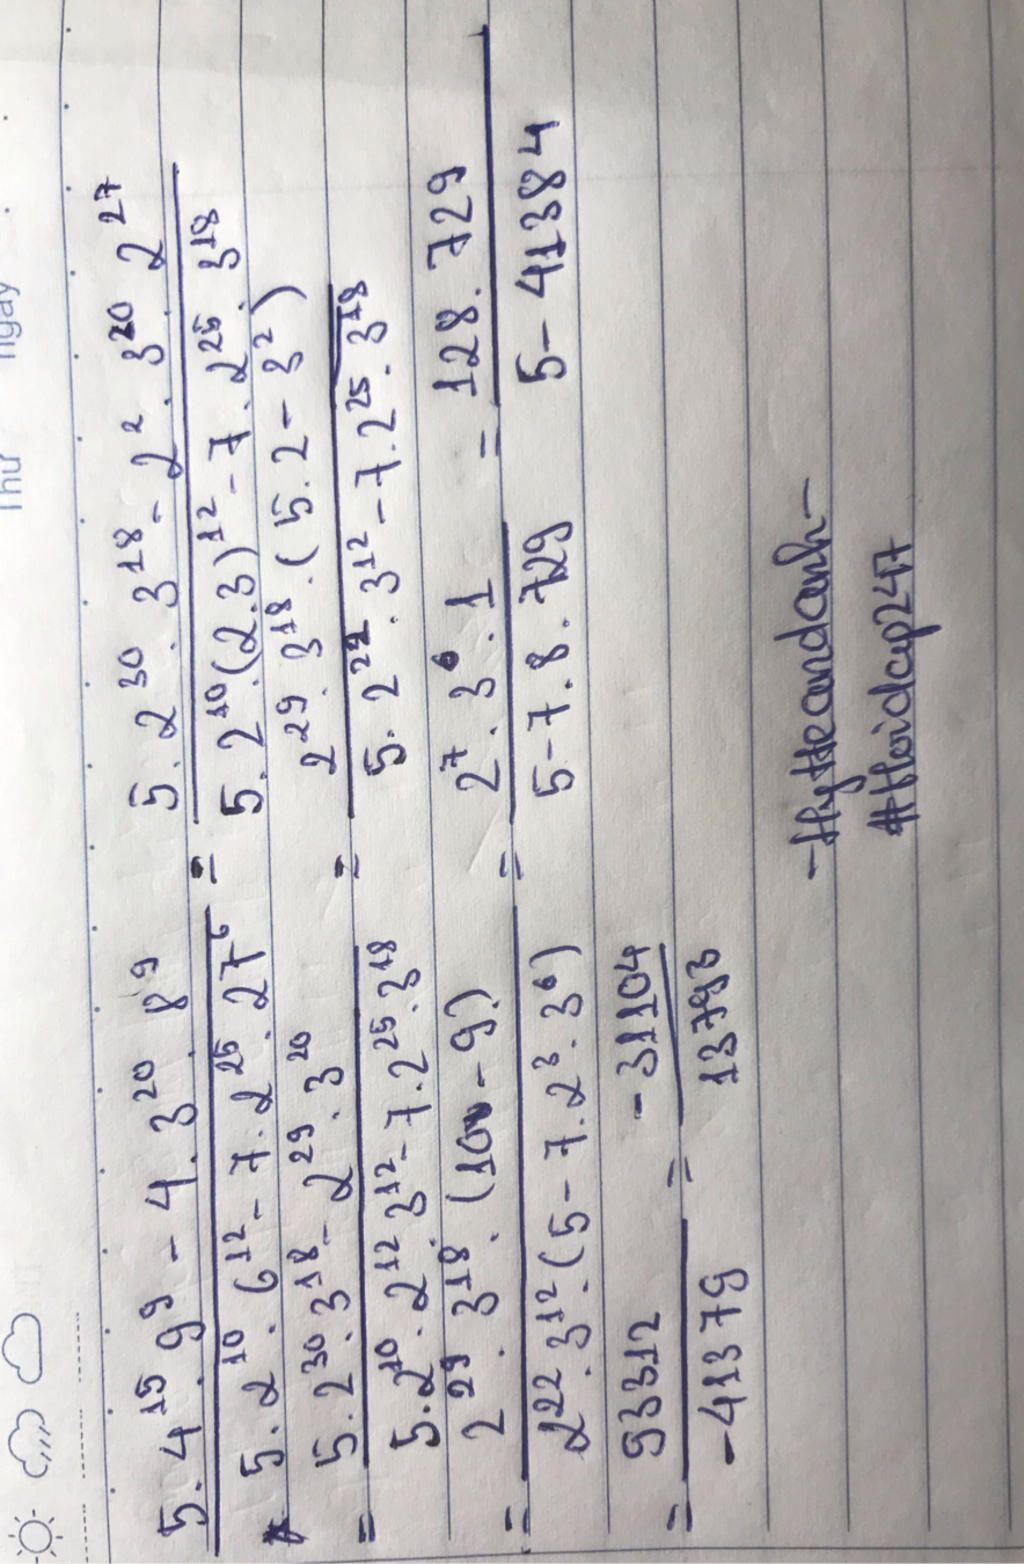 Thứ ngày
5.4¹⁵.9⁹ - 4.3²⁰.8⁹ / 5.2¹⁰.6¹² - 7.2²⁵.27⁶ = 5.2³⁰.3¹⁸ - 2².3²⁰.2²⁷ / 5.2¹⁰.(2.3)¹² - 7.2²⁵.3¹⁸
= 5.2³⁰.3¹⁸ - 2²⁹.3²⁰ / 5.2¹⁰.2¹².3¹² - 7.2²⁵.3¹⁸ = 2²⁹.3¹⁸.(5.2 - 3²) / 5.2²².3¹² - 7.2²⁵.3¹⁸
= 2²⁹.3¹⁸.(10 - 9) / 2²².3¹².(5 - 7.2³.3⁶) = 2⁷.3⁶.1 / 5 - 7.8.729 = 128.729 / 5 - 41384
= 93312 / -41379 = -31104 / 13793